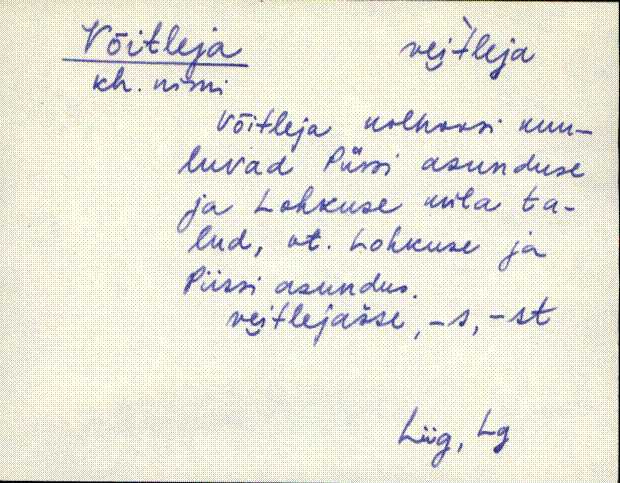 Võitleja vei̯t̀leja
kh. nimi
Võitleja kolhoosi kuu-
luvad Püssi asunduse
ja Lohkuse küla ta-
lud, vt. Lohkuse ja
Püssi asundus.
vei̯tlejašse, -s, -st
Liig, Lg